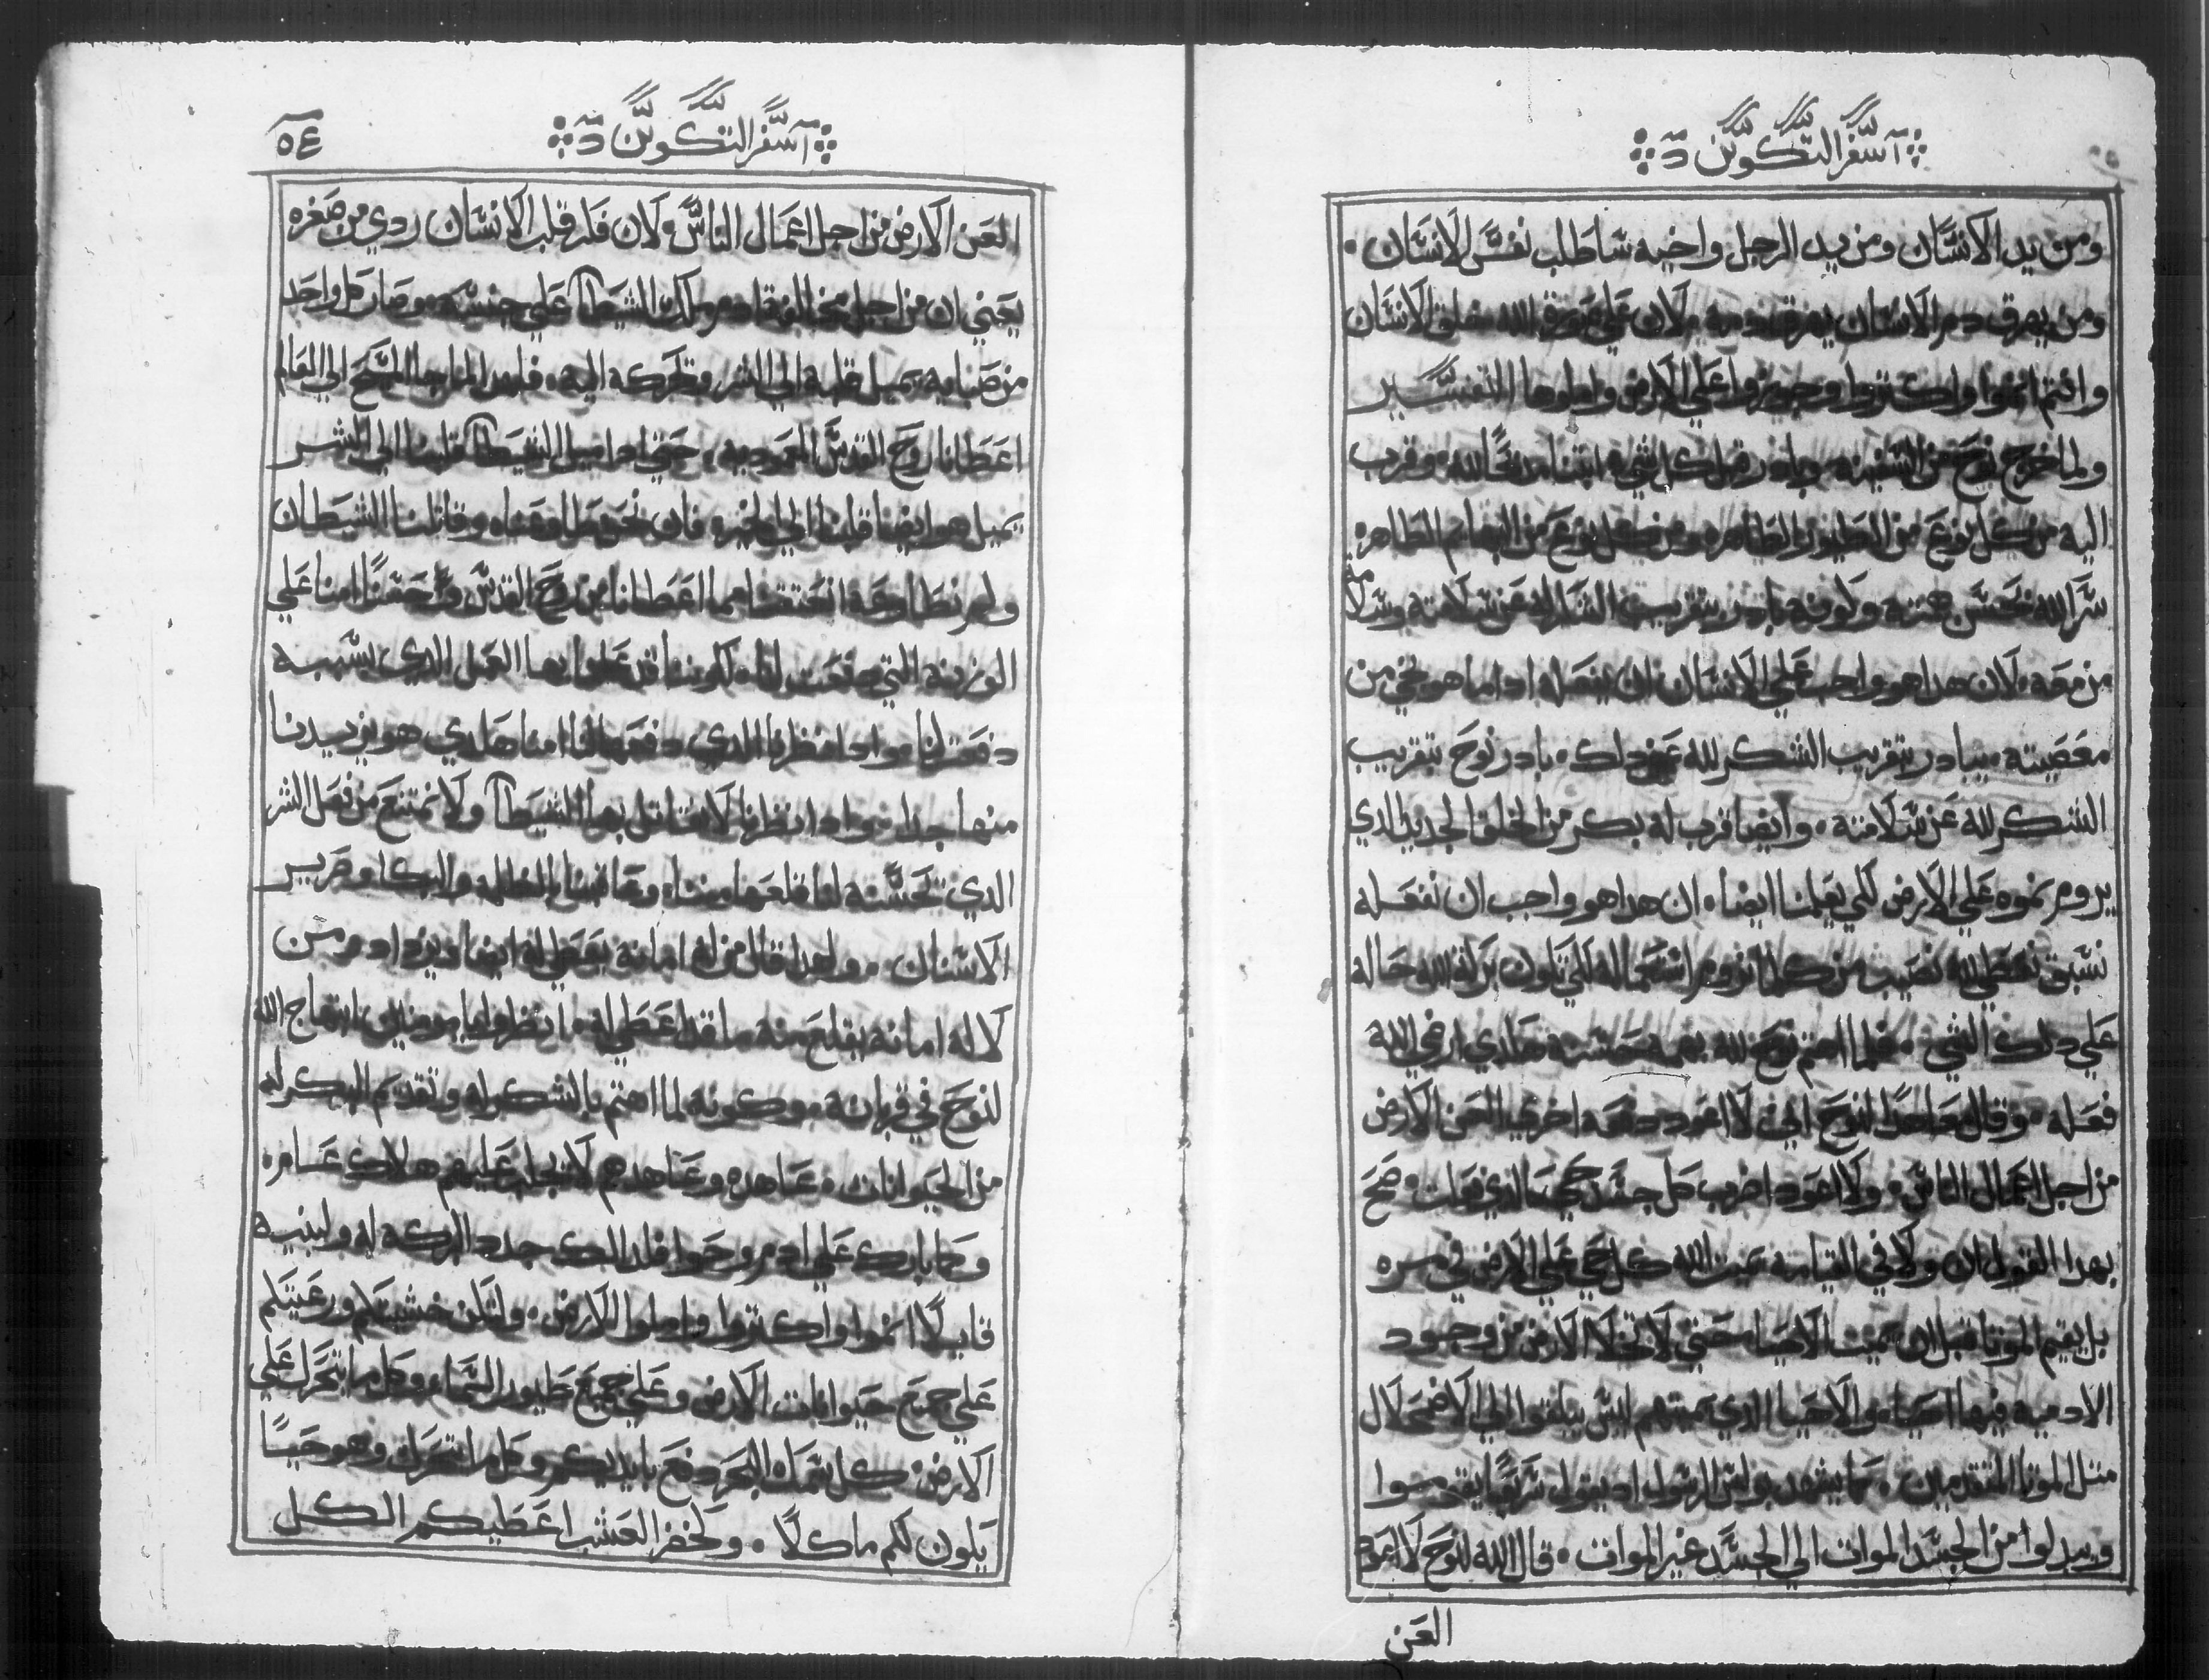 سفر التكوين
ومن يد الانسان ومن يد الرجل واخيه ساطلب نفس الانسان ٠
ومن يهرق دم الانسان يهرق دمه ٠ لان علي صورة الله خلق الانسان
وانتم انموا واكتروا وجوزوا علي الارض واملوها التفسير
ولما خرج نوح من السفينه وباد رقبل كل شي ابتنا مدبحًا لله ٠ وقرب
اليه من كل نوع من الطيور الطاهره ومن كل نوع من البهايم الطاهره
سر الله بحسن همته ولونه بادر بتقريب الشكر له عن سلامته وسلامة
من معه ٠ لان هدا هو واجب علي الانسان ان يفعله ادا ما هو نجي من
معصيته ٠ يبادر بتقريب الشكر لله عن دلك ٠ بادر نوح بتقريب
الشكر لله عن سلامته ٠ وايضا قرب له بكر من الخلق الجديد الدي
يروم نموه علي الارض لكي يعلمنا ايضا ٠ ان هدا هو واجب ان نفعله
نسبق نعطي لله نصيب من كلما نروم استعماله لكي تلون بركة الله حاله
علي دلك الشي ٠ فلما اهتم نوح لله بهمه حسنه هلدي ارضي الله
فعله ٠ وقال معاهدًا لنوح اني لا اعود دفعه اخري العن الارض
من اجل اعمال الناس ٠ ولا اعود اضرب كل جسد حي كالدي فعلت ٠ صح
بهدا القول ان ولا في القيامه يميت الله كل حي علي الارض في مره
بل يقيم الموتا قبل ان يميت الاحيا ٠ حتي لا تخلا الارض من وجود
الادميه فيها احيا ٠ والاحيا الدي يميتهم ليس يبلغوا الي الاضمحلال
متل الموتا المتقدمين ٠ كما يشهد بولس الرسول اد يقول سريعًا يقوموا
ويبدلوا من الجسد الموات الي الجسد غير الموات ٠ قال الله لنوح لا اعود
العن
سفر التكوين
٥٤
العن الارض من اجل اعمال الناس ٠ لان فلر قلب الانسان ردي من صغره
يعني ان من اجل مخالفة ادم ملك الشيطا علي جنسه ٠ وصار كل واحد
من صبايه يميل قلبه الي الشر وتحركه اليه ٠ فلهدا لما جا المسيح الي العالم
اعطانا روح القدس المعموديه ٠ حتي ادا اميل الشيطا قلبنا الي الشر
يميل هو ايضا قلبنا الي الخير ٠ فان نحن طاوعناه وقاتلنا الشيطان
ولم نطاوعه انعتقنا مما اعطانا من روح القدس وتحققنًا امنا علي
الوزنه التي دفعت لنا ٠ لوننا قد عملنا بها العمل الدي بسببه
دفعت لنا ٠ وادا نظرنا الدي دفعها لنا امنا هلدي هو يزيدنا
منها جدا ٠ وادا نظرنا لا نقاتل بها الشيطا ولا نمتنع من فعل الشر
الدي تحسنه لنا قلعها مننا ٠ وعاقبنا بالظلمه والبكا وضرير
الاسنان ٠ ولهدا قال من له امانه يعطي له ايضا ويزداد ومن
لا له امانه يقلع منه ما قد اعطي له ٠ انظروا يا مومنين ابتهاج الله
لنوح في قربانه ٠ وكونه لما اهتم بالشكر له وتقديم البكر له
من الحيوانات ٠ عاهده وعاهدهم لا يجلب عليهم هلاك عام ٠
وكما بارك علي ادم وحوا فلدلك جدد البركه له ولبنيه
قايلًا انموا واكتروا واملوا الارض ٠ ولتلن خشيتلم ورعبتلم
علي جميع حيوانات الارض وعلي جميع طيور السما ٠ وكل ما يتحرك علي
الارض ٠ كل سمك البحر دفع بايديكم وكل ما تتحرك وهو حيًا
يلون لكم ماكلًا ٠ ولخضر العشب اعطيكم الكل